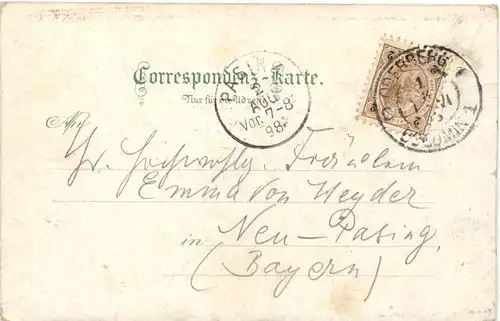 Correspondenz-Karte.
Nur für die Adresse
PASING
2
AUG
Vor. 7-8
98
ODERBERG
An
Hochwohlg. Fräulein
Emma von Weyder
in Neu-Pasing,
(Bayern)